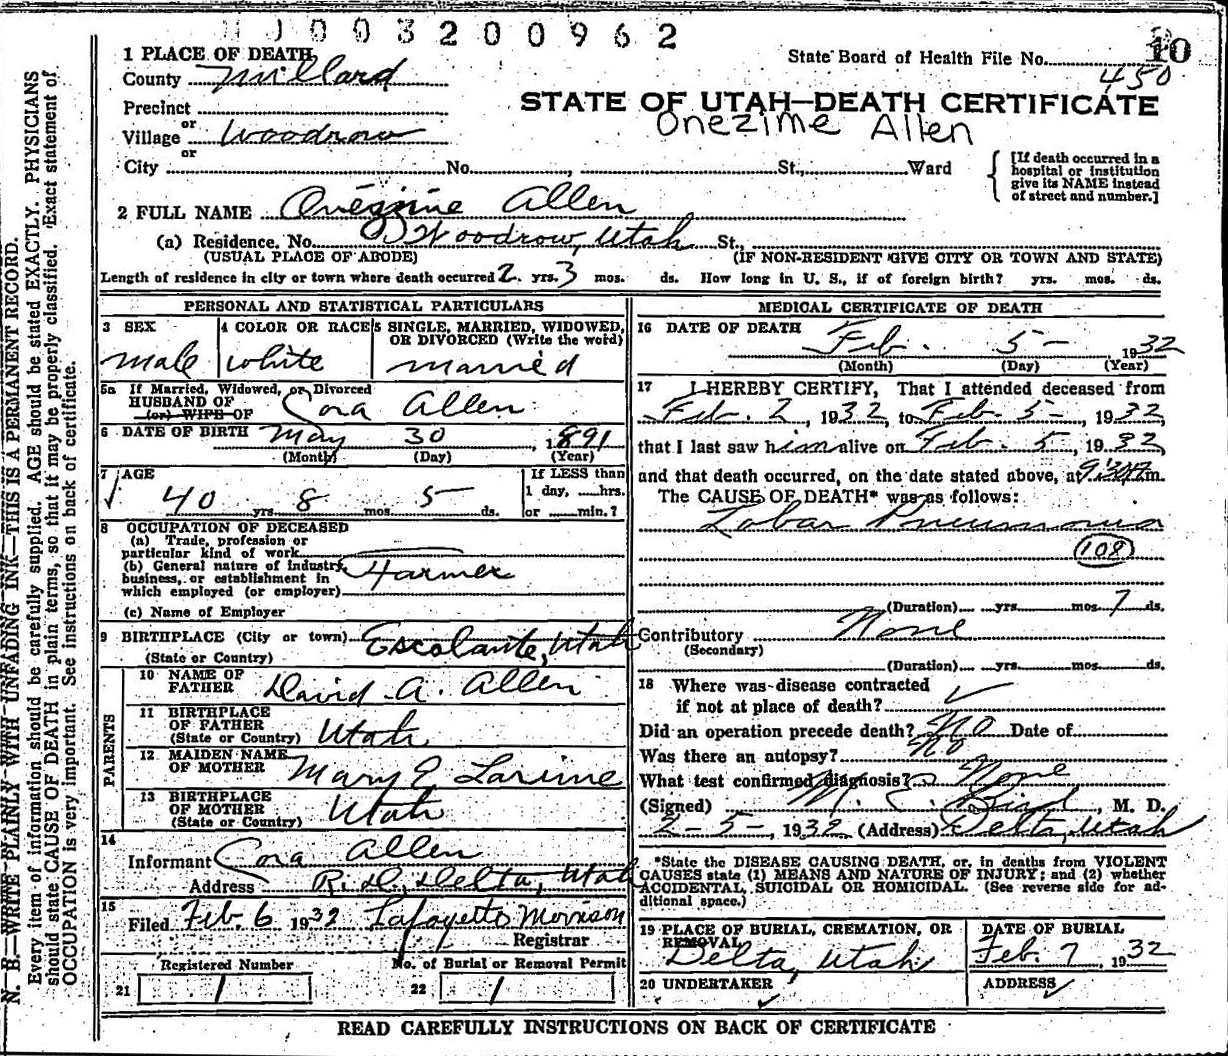 003200962
1 PLACE OF DEATH
State Board of Health File No. 10
County Millard 450
Precinct
STATE OF UTAH—DEATH CERTIFICATE
or
Village Woodrow
Onezime Allen
or
City No. , St., Ward
[If death occurred in a hospital or institution give its NAME instead of street and number.]
2 FULL NAME Onezime Allen
(a) Residence. No. Woodrow, Utah St.,
(USUAL PLACE OF ABODE) (IF NON-RESIDENT GIVE CITY OR TOWN AND STATE)
Length of residence in city or town where death occurred 2 yrs. 3 mos. ds. How long in U. S., if of foreign birth? yrs. mos. ds.
PERSONAL AND STATISTICAL PARTICULARS
3 SEX
male
4 COLOR OR RACE
white
5 SINGLE, MARRIED, WIDOWED, OR DIVORCED (Write the word)
married
5a If Married, Widowed, or Divorced
HUSBAND OF
(or) WIFE OF Cora Allen
6 DATE OF BIRTH May 30, 1891
(Month) (Day) (Year)
7 AGE
40 yrs. 8 mos. 5 ds.
If LESS than
1 day, hrs.
or min.?
8 OCCUPATION OF DECEASED
(a) Trade, profession or
particular kind of work
(b) General nature of industry,
business, or establishment in
which employed (or employer) Farmer
(c) Name of Employer
9 BIRTHPLACE (City or town) Escalante, Utah
(State or Country)
PARENTS
10 NAME OF
FATHER David A. Allen
11 BIRTHPLACE
OF FATHER
(State or Country) Utah
12 MAIDEN NAME
OF MOTHER Mary E
13 BIRTHPLACE
OF MOTHER
(State or Country) Utah
14
Informant Cora Allen
Address R. D., Delta, Utah
15
Filed Feb. 6 1932 Lafayette Morrison
Registrar
Registered Number No. of Burial or Removal Permit
21 1 22 1
MEDICAL CERTIFICATE OF DEATH
16 DATE OF DEATH
Feb. 5- 1932
(Month) (Day) (Year)
17 I HEREBY CERTIFY, That I attended deceased from
Feb. 2, 1932, to Feb. 5-, 1932,
that I last saw him alive on Feb. 5, 1932,
and that death occurred, on the date stated above, at 9:30 m.
The CAUSE OF DEATH* was as follows:
Lobar Pneumonia
108
(Duration) yrs. mos. 7 ds.
Contributory None
(Secondary)
(Duration) yrs. mos. ds.
18 Where was disease contracted
if not at place of death?
Did an operation precede death? No Date of
Was there an autopsy? No
What test confirmed diagnosis? None
(Signed) M. E. Bird, M. D.
2-5-, 1932 (Address) Delta, Utah
*State the DISEASE CAUSING DEATH, or, in deaths from VIOLENT
CAUSES state (1) MEANS AND NATURE OF INJURY; and (2) whether
ACCIDENTAL, SUICIDAL OR HOMICIDAL. (See reverse side for ad-
ditional space.)
19 PLACE OF BURIAL, CREMATION, OR
REMOVAL
Delta, Utah
DATE OF BURIAL
Feb. 7, 1932
20 UNDERTAKER
ADDRESS
READ CAREFULLY INSTRUCTIONS ON BACK OF CERTIFICATE
N. B.—WRITE PLAINLY WITH UNFADING INK—THIS IS A PERMANENT RECORD.
Every item of information should be carefully supplied. AGE should be stated EXACTLY. PHYSICIANS
should state CAUSE OF DEATH in plain terms, so that it may be properly classified. Exact statement of
OCCUPATION is very important. See instructions on back of certificate.